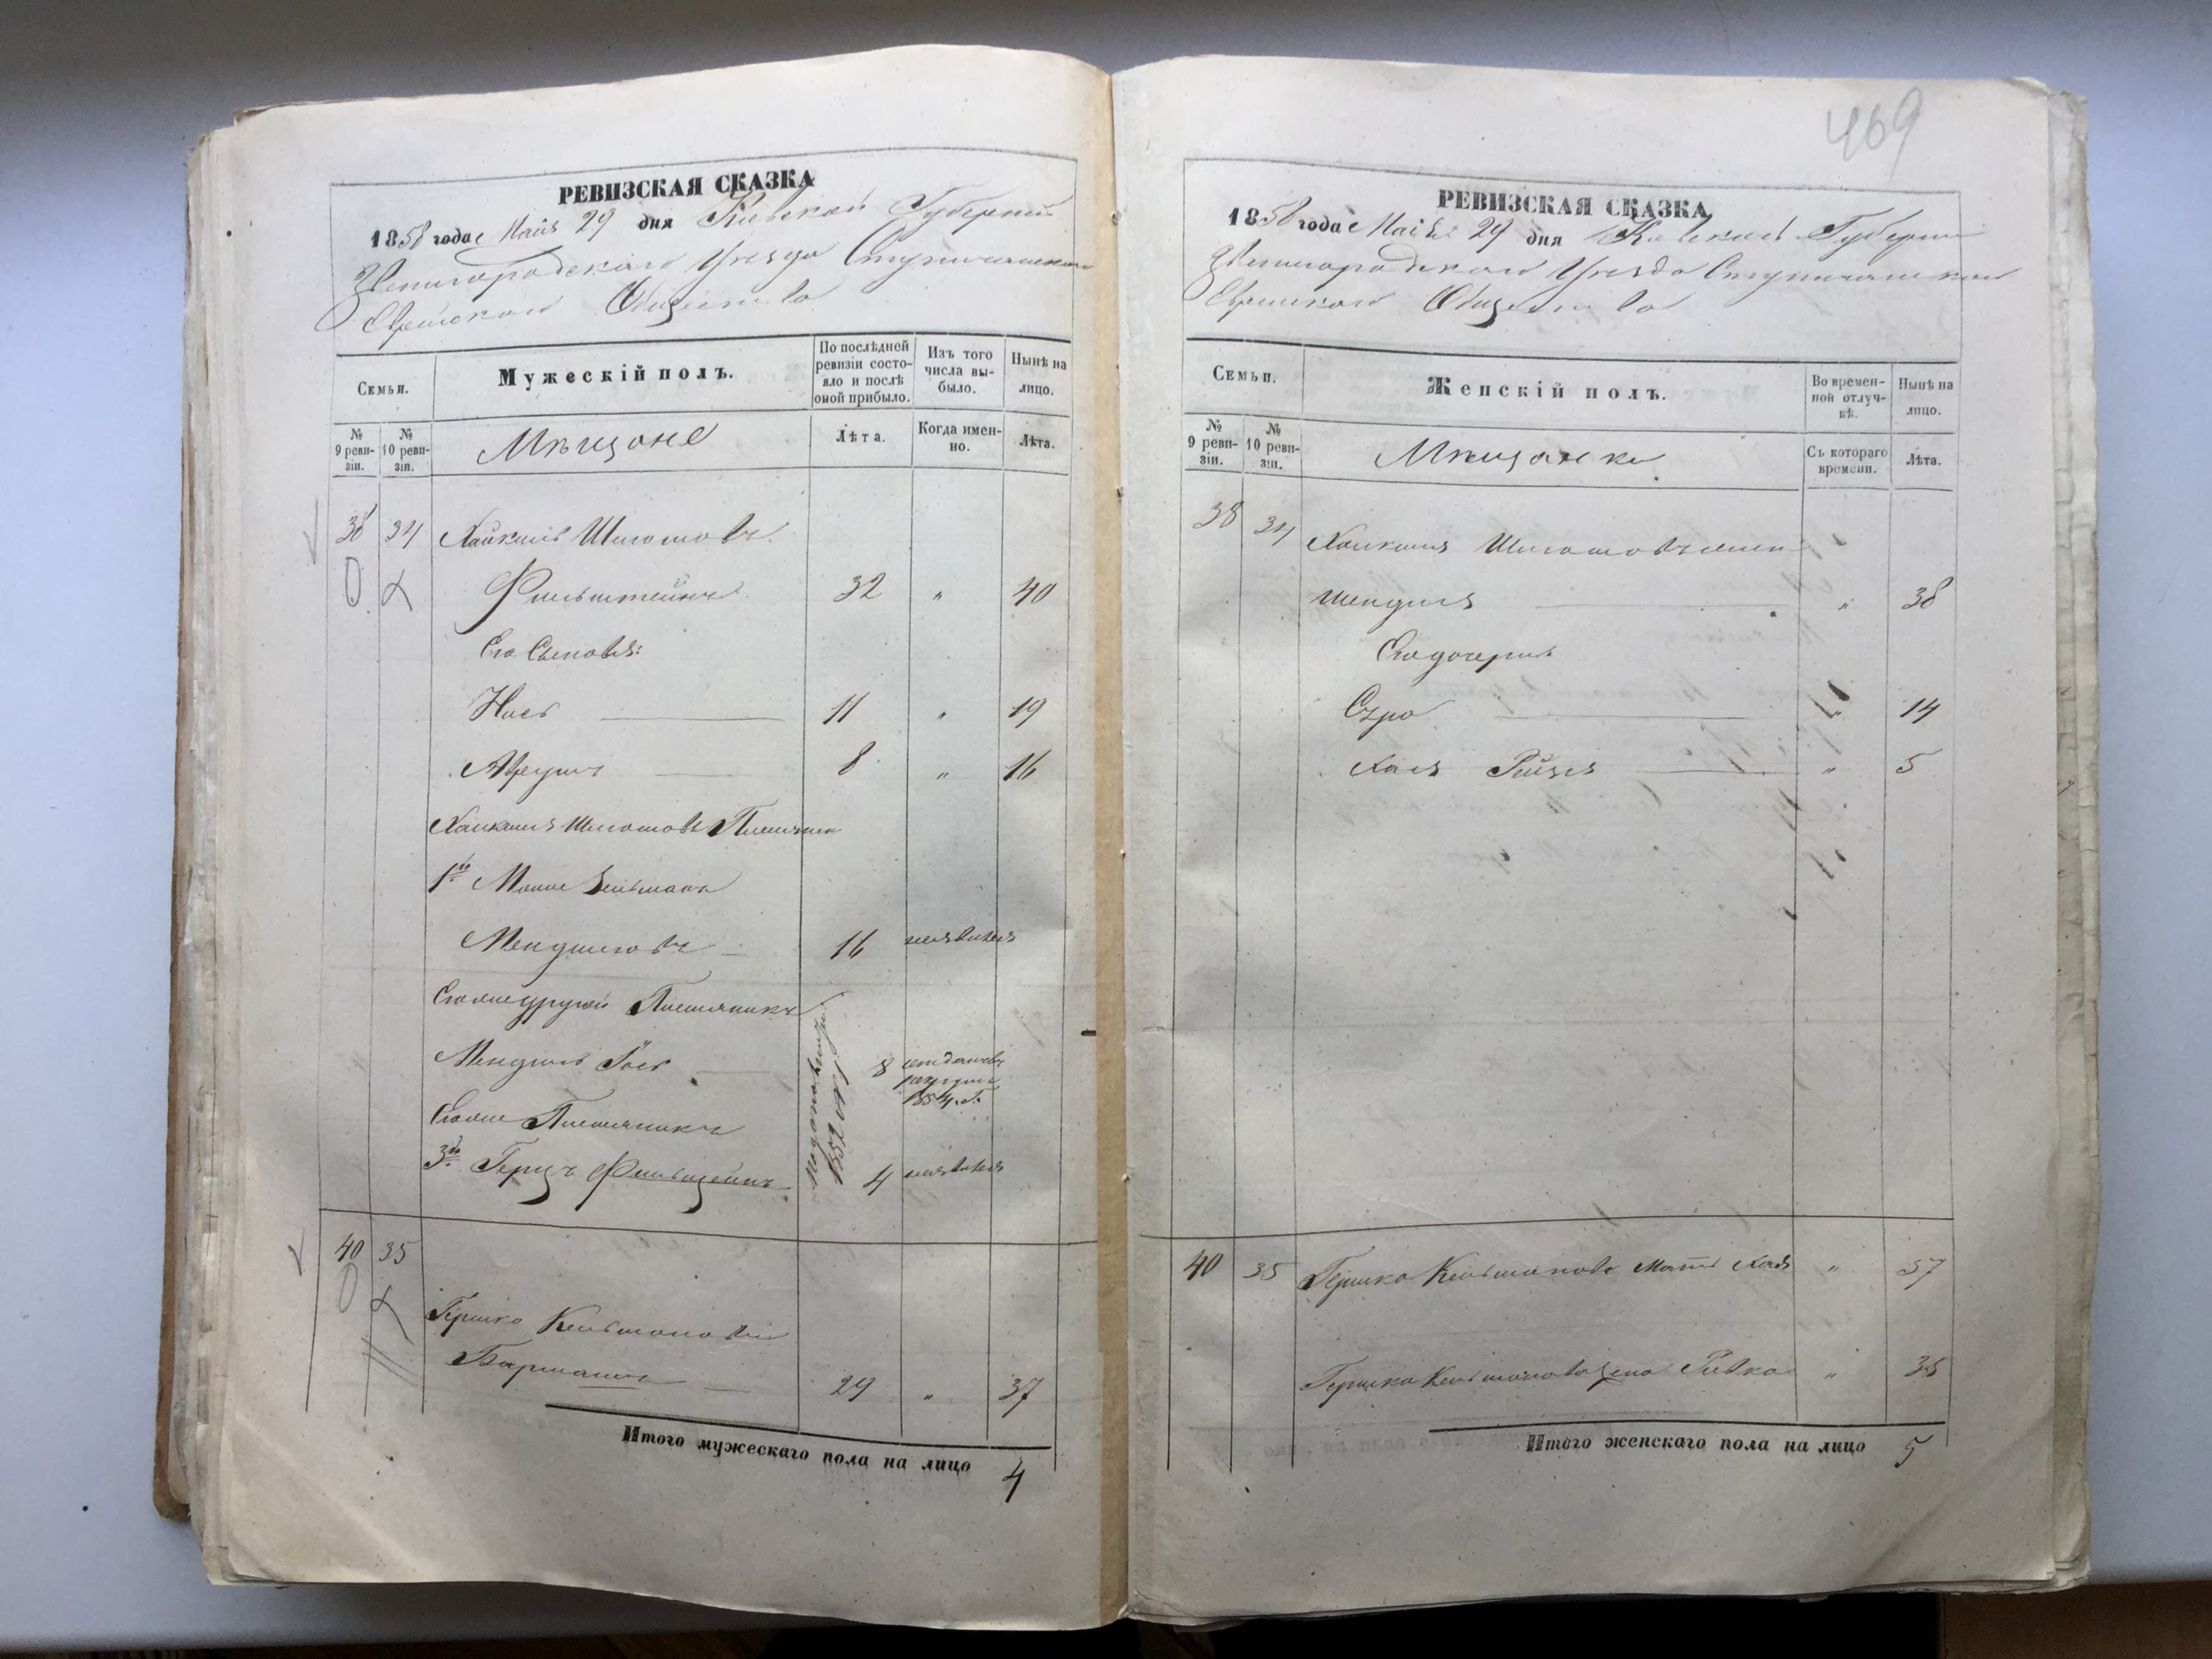 469
РЕВИЗСКАЯ СКАЗКА
1858 года Маія 29 дня Кіевской Губерніи
Звенигородскаго Уезда
Еврейскаго Общества
Семьи.
Мужескій полъ.
По послѣдней ревизіи состояло и послѣ оной прибыло.
Изъ того числа выбыло.
Нынѣ на лицо.
№ 9 ревизіи.
№ 10 ревизіи.
Мѣщане
Лѣта.
Когда именно.
Лѣта.
38 34 Хайкель Шлiомовъ
Фильштейнъ 32 " 40
Его Сыновья:
11 " 19
8 " 16
1й
Мендилевъ 16 неявился
Его же другой Племянникъ
Мендель 8
1854 г.
Его же Племянникъ
3й Герцъ Фильштейнъ 4 неявился
1852 году
40 35
Гершко Кельмановъ
Барманъ 29 " 37
Итого мужескаго пола на лицо 4
РЕВИЗСКАЯ СКАЗКА
1858 года Маія 29 дня Кіевской Губерніи
Звенигородскаго Уезда
Еврейскаго Общества
Семьи.
Женскій полъ.
Во временной отлучкѣ.
Нынѣ на лицо.
№ 9 ревизіи.
№ 10 ревизіи.
Мѣщанки
Съ котораго времени.
Лѣта.
38 34
Шендля " 38
Его дочери
Сура " 14
Хая Рейзя " 5
40 35 Гершка Кельманова Мать Хая " 57
Гершка Кельманова жена Ривка " 35
Итого женскаго пола на лицо 5